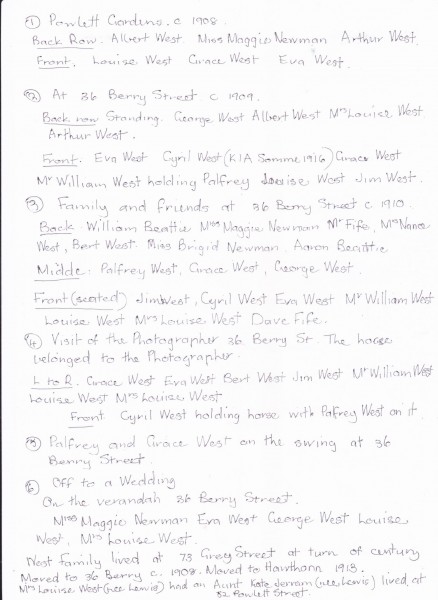 ① Powlett Gardens. c 1908.
Back Row. Albert West Miss Maggie Newman Arthur West.
Front. Louise West Grace West Eva West.
② At 36 Berry Street c 1909.
Back row Standing. George West Albert West Mrs Louise West
Arthur West.
Front. Eva West Cyril West (KIA Somme 1916) Grace West
Mr William West holding Palfrey Louise West Jim West.
③ Family and friends at 36 Berry Street c 1910.
Back William Beattie Miss Maggie Newman Mr Fife, Ms Nance
West, Bert West. Miss Brigid Newman, Aaron Beattie
Middle. Palfrey West, Grace West, George West.
Front (seated) Jim West, Cyril West Eva West Mr William West
Louise West Mrs Louise West Dave Fife.
④ Visit of the Photographer 36 Berry St. The horse
belonged to the Photographer.
L to R. Grace West Eva West Bert West Jim West Mr William West
Louise West Mrs Louise West
Front Cyril West holding horse with Palfrey West on it.
⑤ Palfrey and Grace West on the swing at 36
Berry Street.
⑥ Off to a Wedding
On the verandah 36 Berry Street.
Miss Maggie Newman Eva West George West Louise
West, Mrs Louise West.
West Family lived at 73 Grey Street at turn of century
Moved to 36 Berry c. 1908. Moved to Hawthorn 1913.
Mrs Louise West (nee Lewis) had an Aunt Kate Jerram (nee Lewis) lived at
82 Powlett Street.